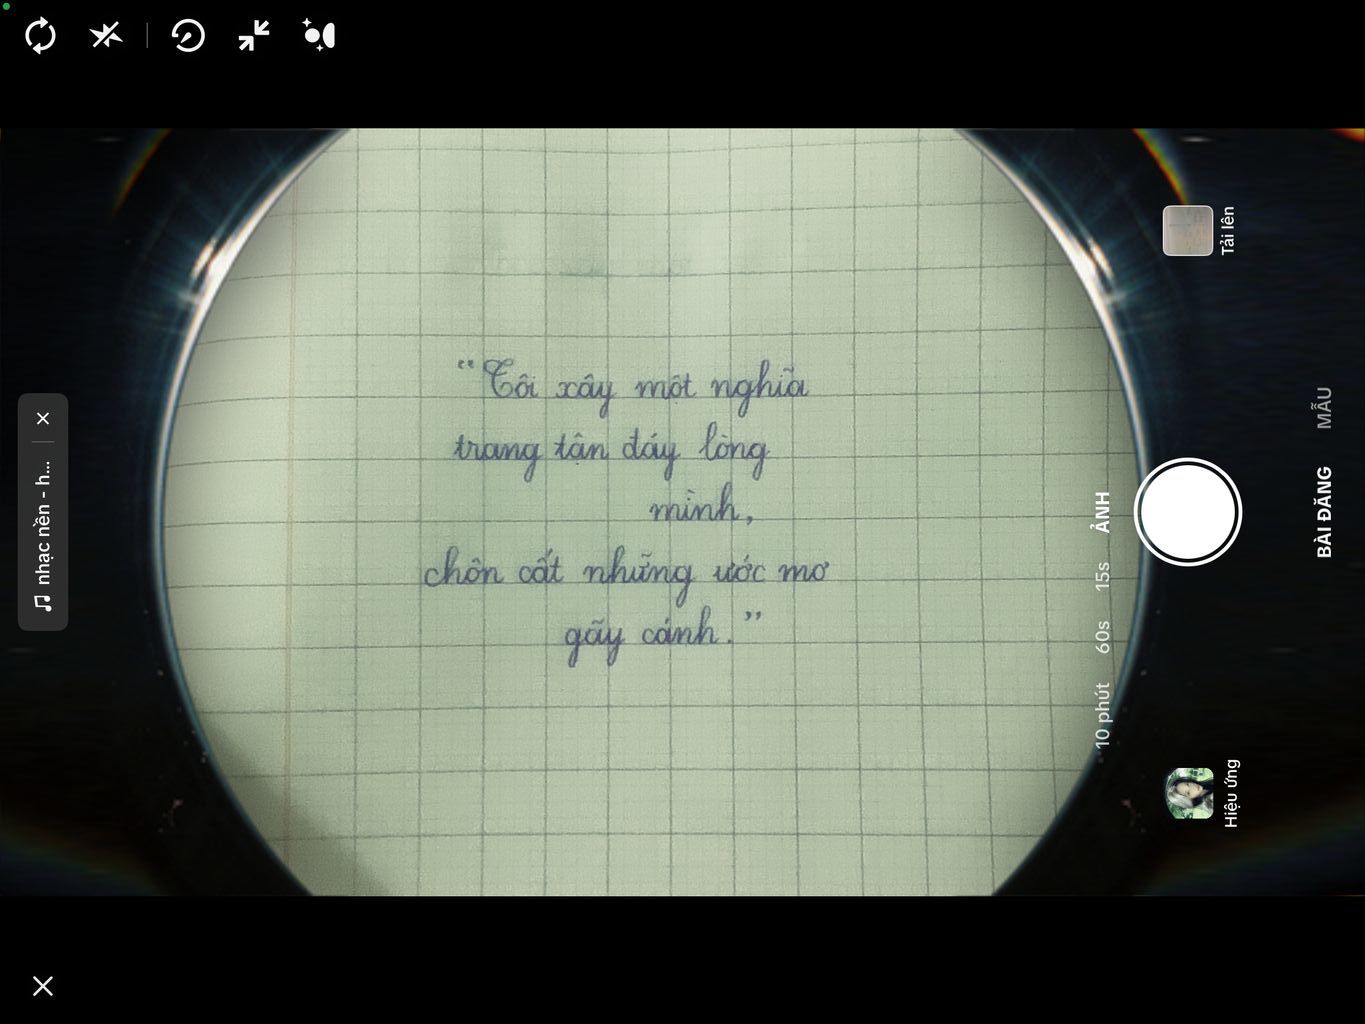 “Tôi xây một nghĩa
trang tận đáy lòng
mình,
chôn cất những ước mơ
gãy cánh.”
nhạc nền - h...
Tải lên
MẪU
BÀI ĐĂNG
ẢNH
15s
60s
10 phút
Hiệu ứng